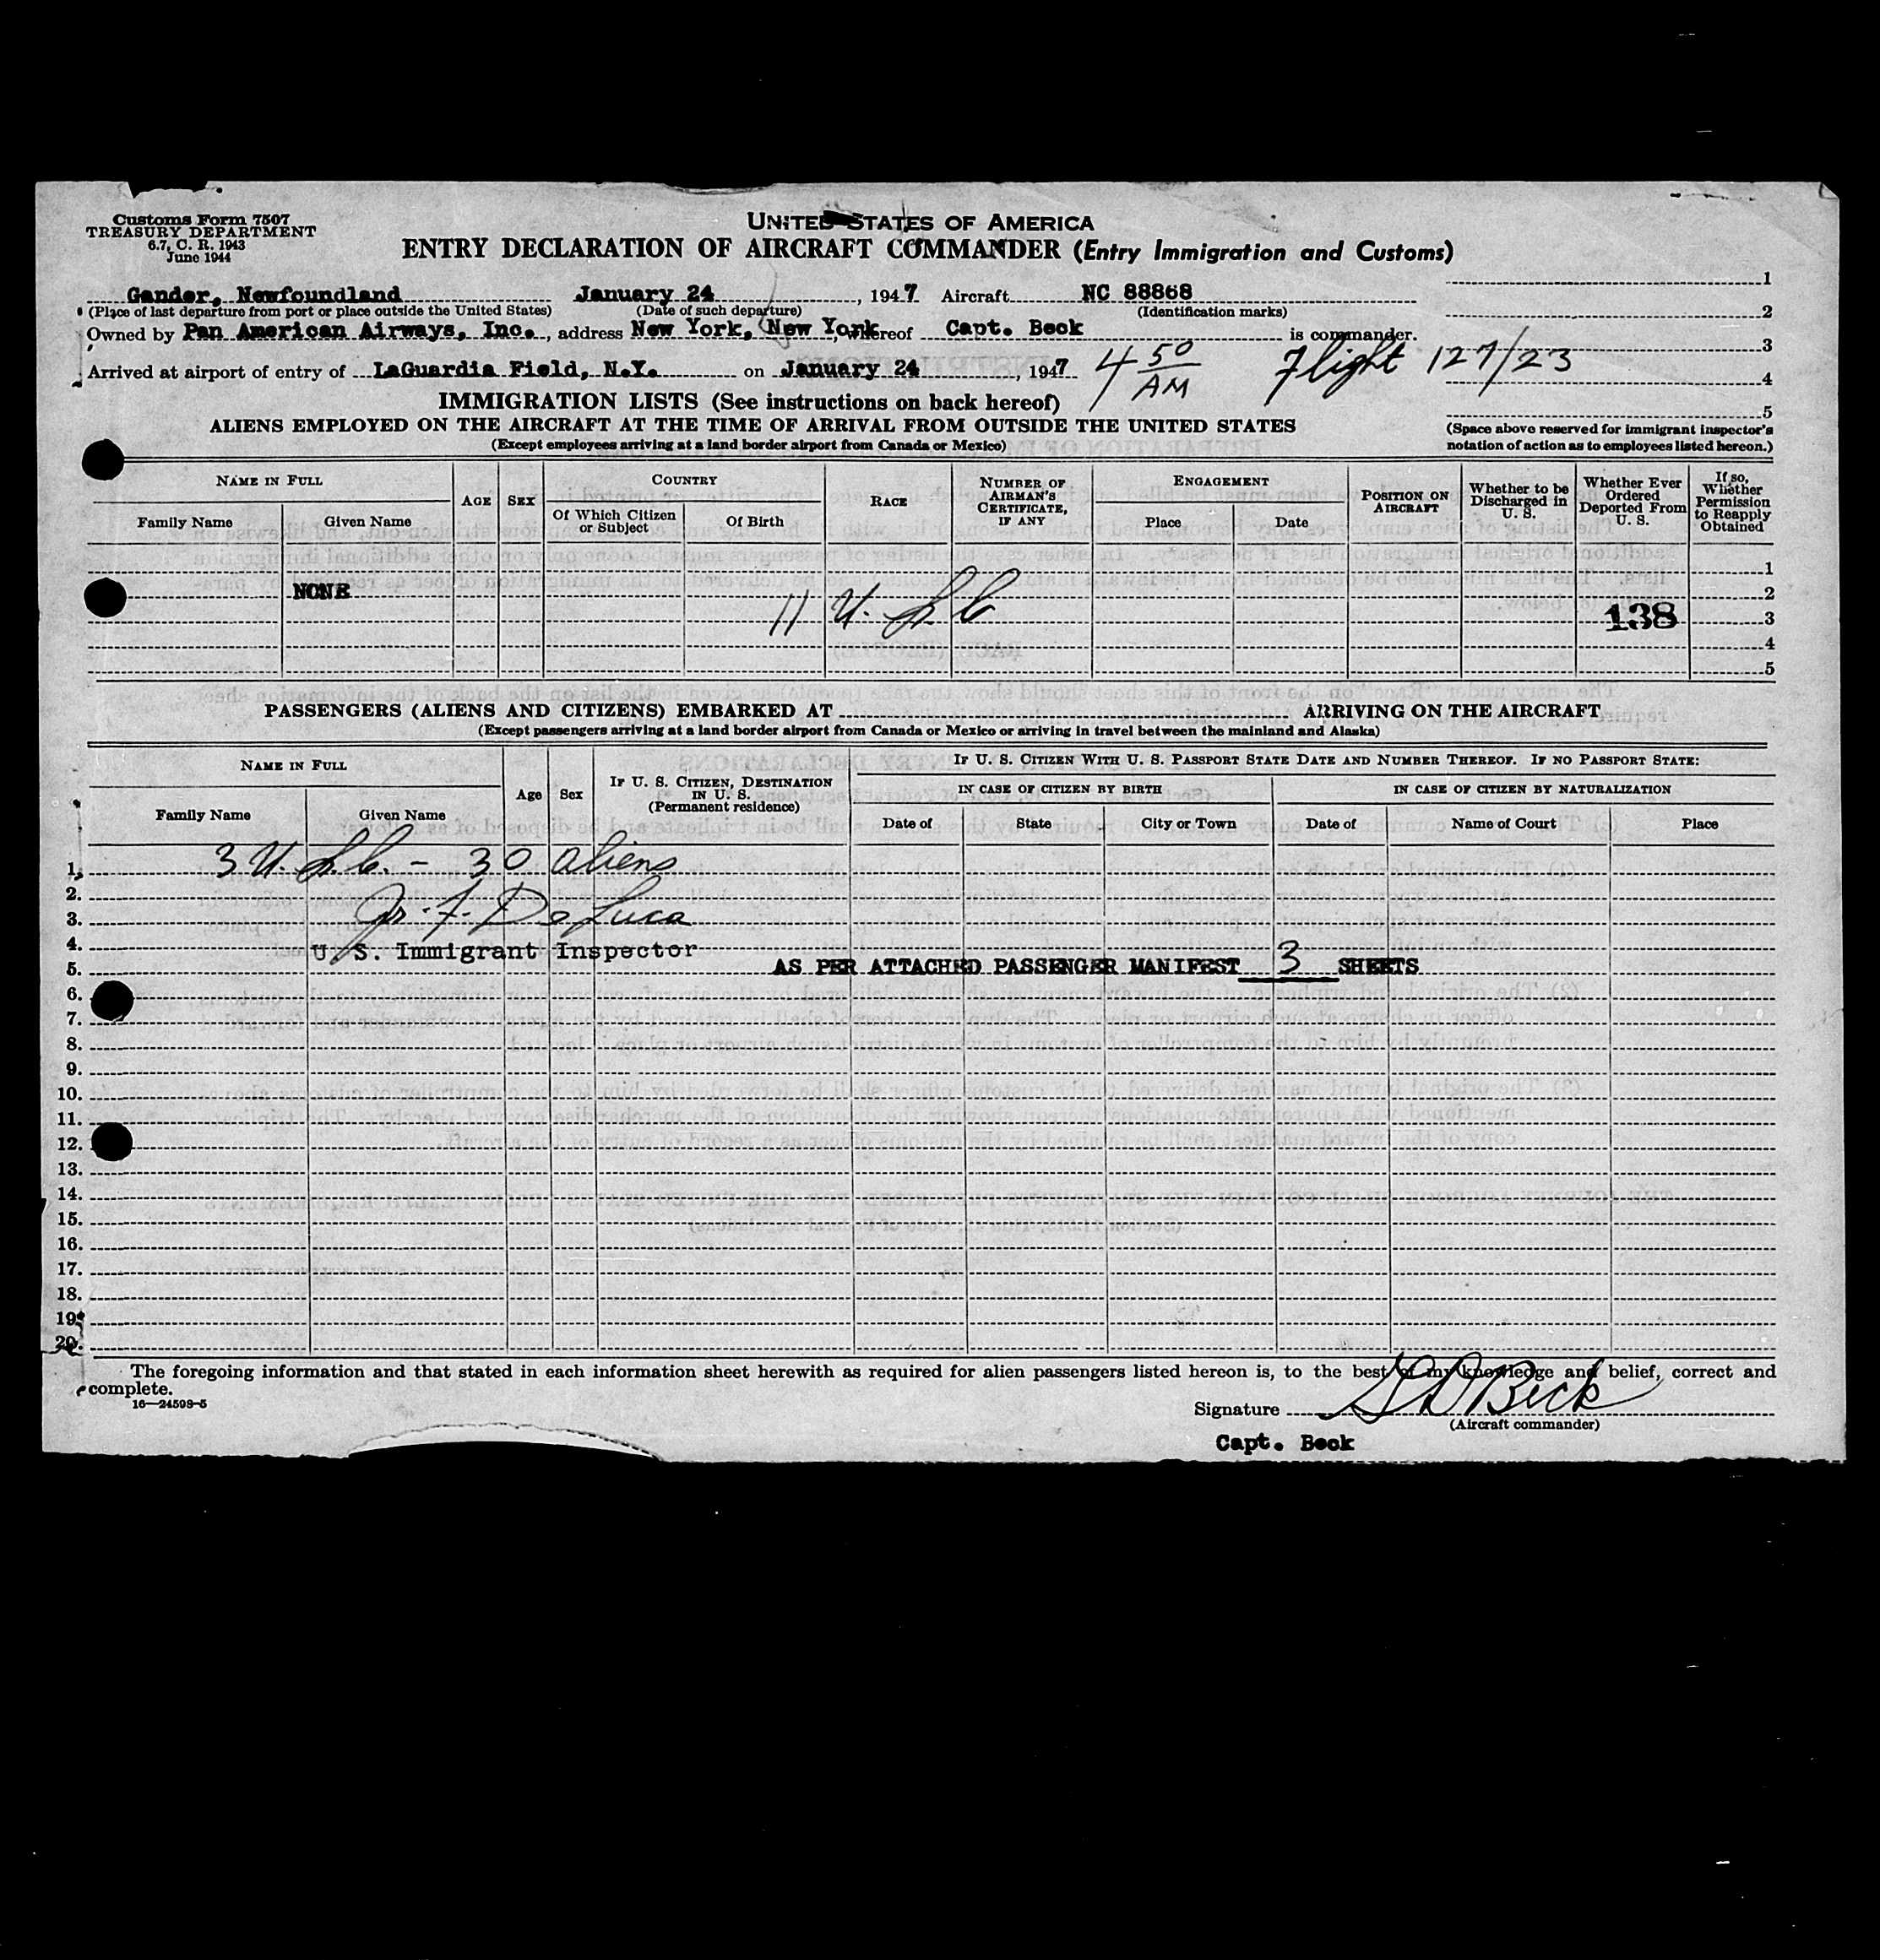 Customs Form 7507
TREASURY DEPARTMENT
6.7, C. R. 1943
June 1944
UNITED STATES OF AMERICA
ENTRY DECLARATION OF AIRCRAFT COMMANDER (Entry Immigration and Customs)
Gander, Newfoundland January 24, 1947 Aircraft NC 88868
(Place of last departure from port or place outside the United States) (Date of such departure) (Identification marks)
Owned by Pan American Airways, Inc., address New York, New York, whereof Capt. Beck is commander.
Arrived at airport of entry of LaGuardia Field, N.Y. on January 24, 1947 4 50 AM Flight 127/23
1
2
3
4
5
(Space above reserved for immigrant inspector's
notation of action as to employees listed hereon.)
IMMIGRATION LISTS (See instructions on back hereof)
ALIENS EMPLOYED ON THE AIRCRAFT AT THE TIME OF ARRIVAL FROM OUTSIDE THE UNITED STATES
(Except employees arriving at a land border airport from Canada or Mexico)
NAME IN FULL
Family Name Given Name
AGE
SEX
COUNTRY
Of Which Citizen or Subject
Of Birth
RACE
NUMBER OF AIRMAN'S CERTIFICATE, IF ANY
ENGAGEMENT
Place Date
POSITION ON AIRCRAFT
Whether to be Discharged in U. S.
Whether Ever Ordered Deported From U. S.
If so, Whether Permission to Reapply Obtained
1
NONE 2
11 U. S. C 138 3
4
5
PASSENGERS (ALIENS AND CITIZENS) EMBARKED AT ARRIVING ON THE AIRCRAFT
(Except passengers arriving at a land border airport from Canada or Mexico or arriving in travel between the mainland and Alaska)
NAME IN FULL
Family Name Given Name
Age
Sex
IF U. S. CITIZEN, DESTINATION IN U. S.
(Permanent residence)
IF U. S. CITIZEN WITH U. S. PASSPORT STATE DATE AND NUMBER THEREOF. IF NO PASSPORT STATE:
IN CASE OF CITIZEN BY BIRTH IN CASE OF CITIZEN BY NATURALIZATION
Date of State City or Town Date of Name of Court Place
1. 3 U. S.C. - 30 aliens
2.
3. F. DeLuca
4. U. S. Immigrant Inspector
5. AS PER ATTACHED PASSENGER MANIFEST 3 SHEETS
6.
7.
8.
9.
10.
11.
12.
13.
14.
15.
16.
17.
18.
19.
20.
The foregoing information and that stated in each information sheet herewith as required for alien passengers listed hereon is, to the best of my knowledge and belief, correct and
complete.
16—24598-5
Signature Beck
(Aircraft commander)
Capt. Beck